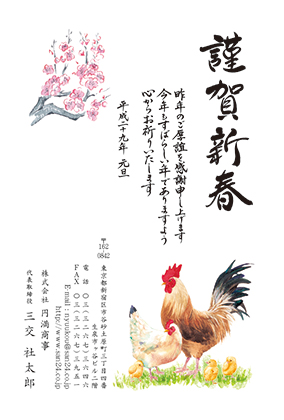 謹賀新春
昨年のご厚誼を感謝申し上げます
今年もすばらしい年でありますよう
心からお祈りいたします
平成二十九年 元旦
〒162-0842
東京都新宿区市谷砂土原町三丁目四番
生泉市ヶ谷ビル二階
電話 〇三(三二六七)三六四六
FAX 〇三(三二六七)三九五一
E-mail:nyuukou@san24.co.jp
http://www.san24.co.jp
株式会社 円満商事
代表取締役 三交 社太郎